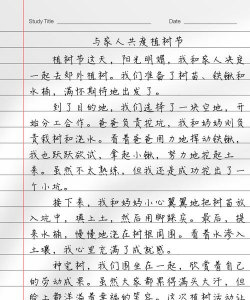 Study Title
Date
与家人共度植树节
植树节这天，阳光明媚，我和家人决定
一起去郊外植树。我们准备了树苗、铁锹和
水桶，满怀期待地出发了。
到了目的地，我们选择了一块空地，开
始分工合作。爸爸负责挖坑，我和妈妈则负
责栽树和浇水。看着爸爸用力地挥动铁锹，
我也跃跃欲试，拿起小锹，努力地挖起土
来。虽然不太熟练，但我还是成功挖出了一
个小坑。
接下来，我和妈妈小心翼翼地把树苗放
入坑中，填上土，然后用脚踩实。最后，提
来水桶，慢慢地浇在树根周围。看着水渗入
土壤，我心里充满了成就感。
种完树，我们围坐在一起，欣赏着自己
的劳动成果。虽然大家都累得满头大汗，但
脸上都洋溢着幸福的笑容。这次植树活动不